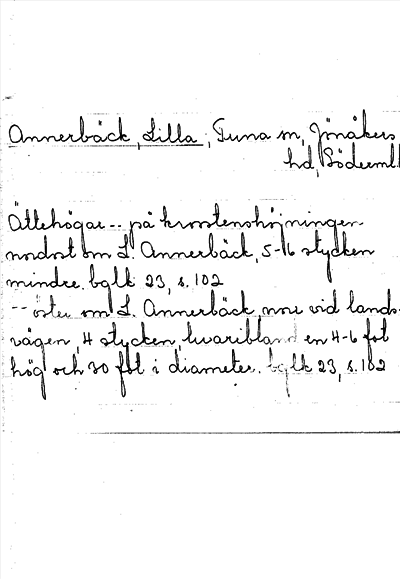 Annerbäck, Lilla, Tuna sn, Jönåkers
hd, Söderml.
Ättehögar -- på krosstenshöjningen
nordost om L. Annerbäck, 5-16 stycken
mindre. bglk 23, s. 102
-- öster om L. Annerbäck, nere vid lands-
vägen, 4 stycken, hvaribland en 4-6 fot
hög och 30 fot i diameter. bglk 23, s. 102